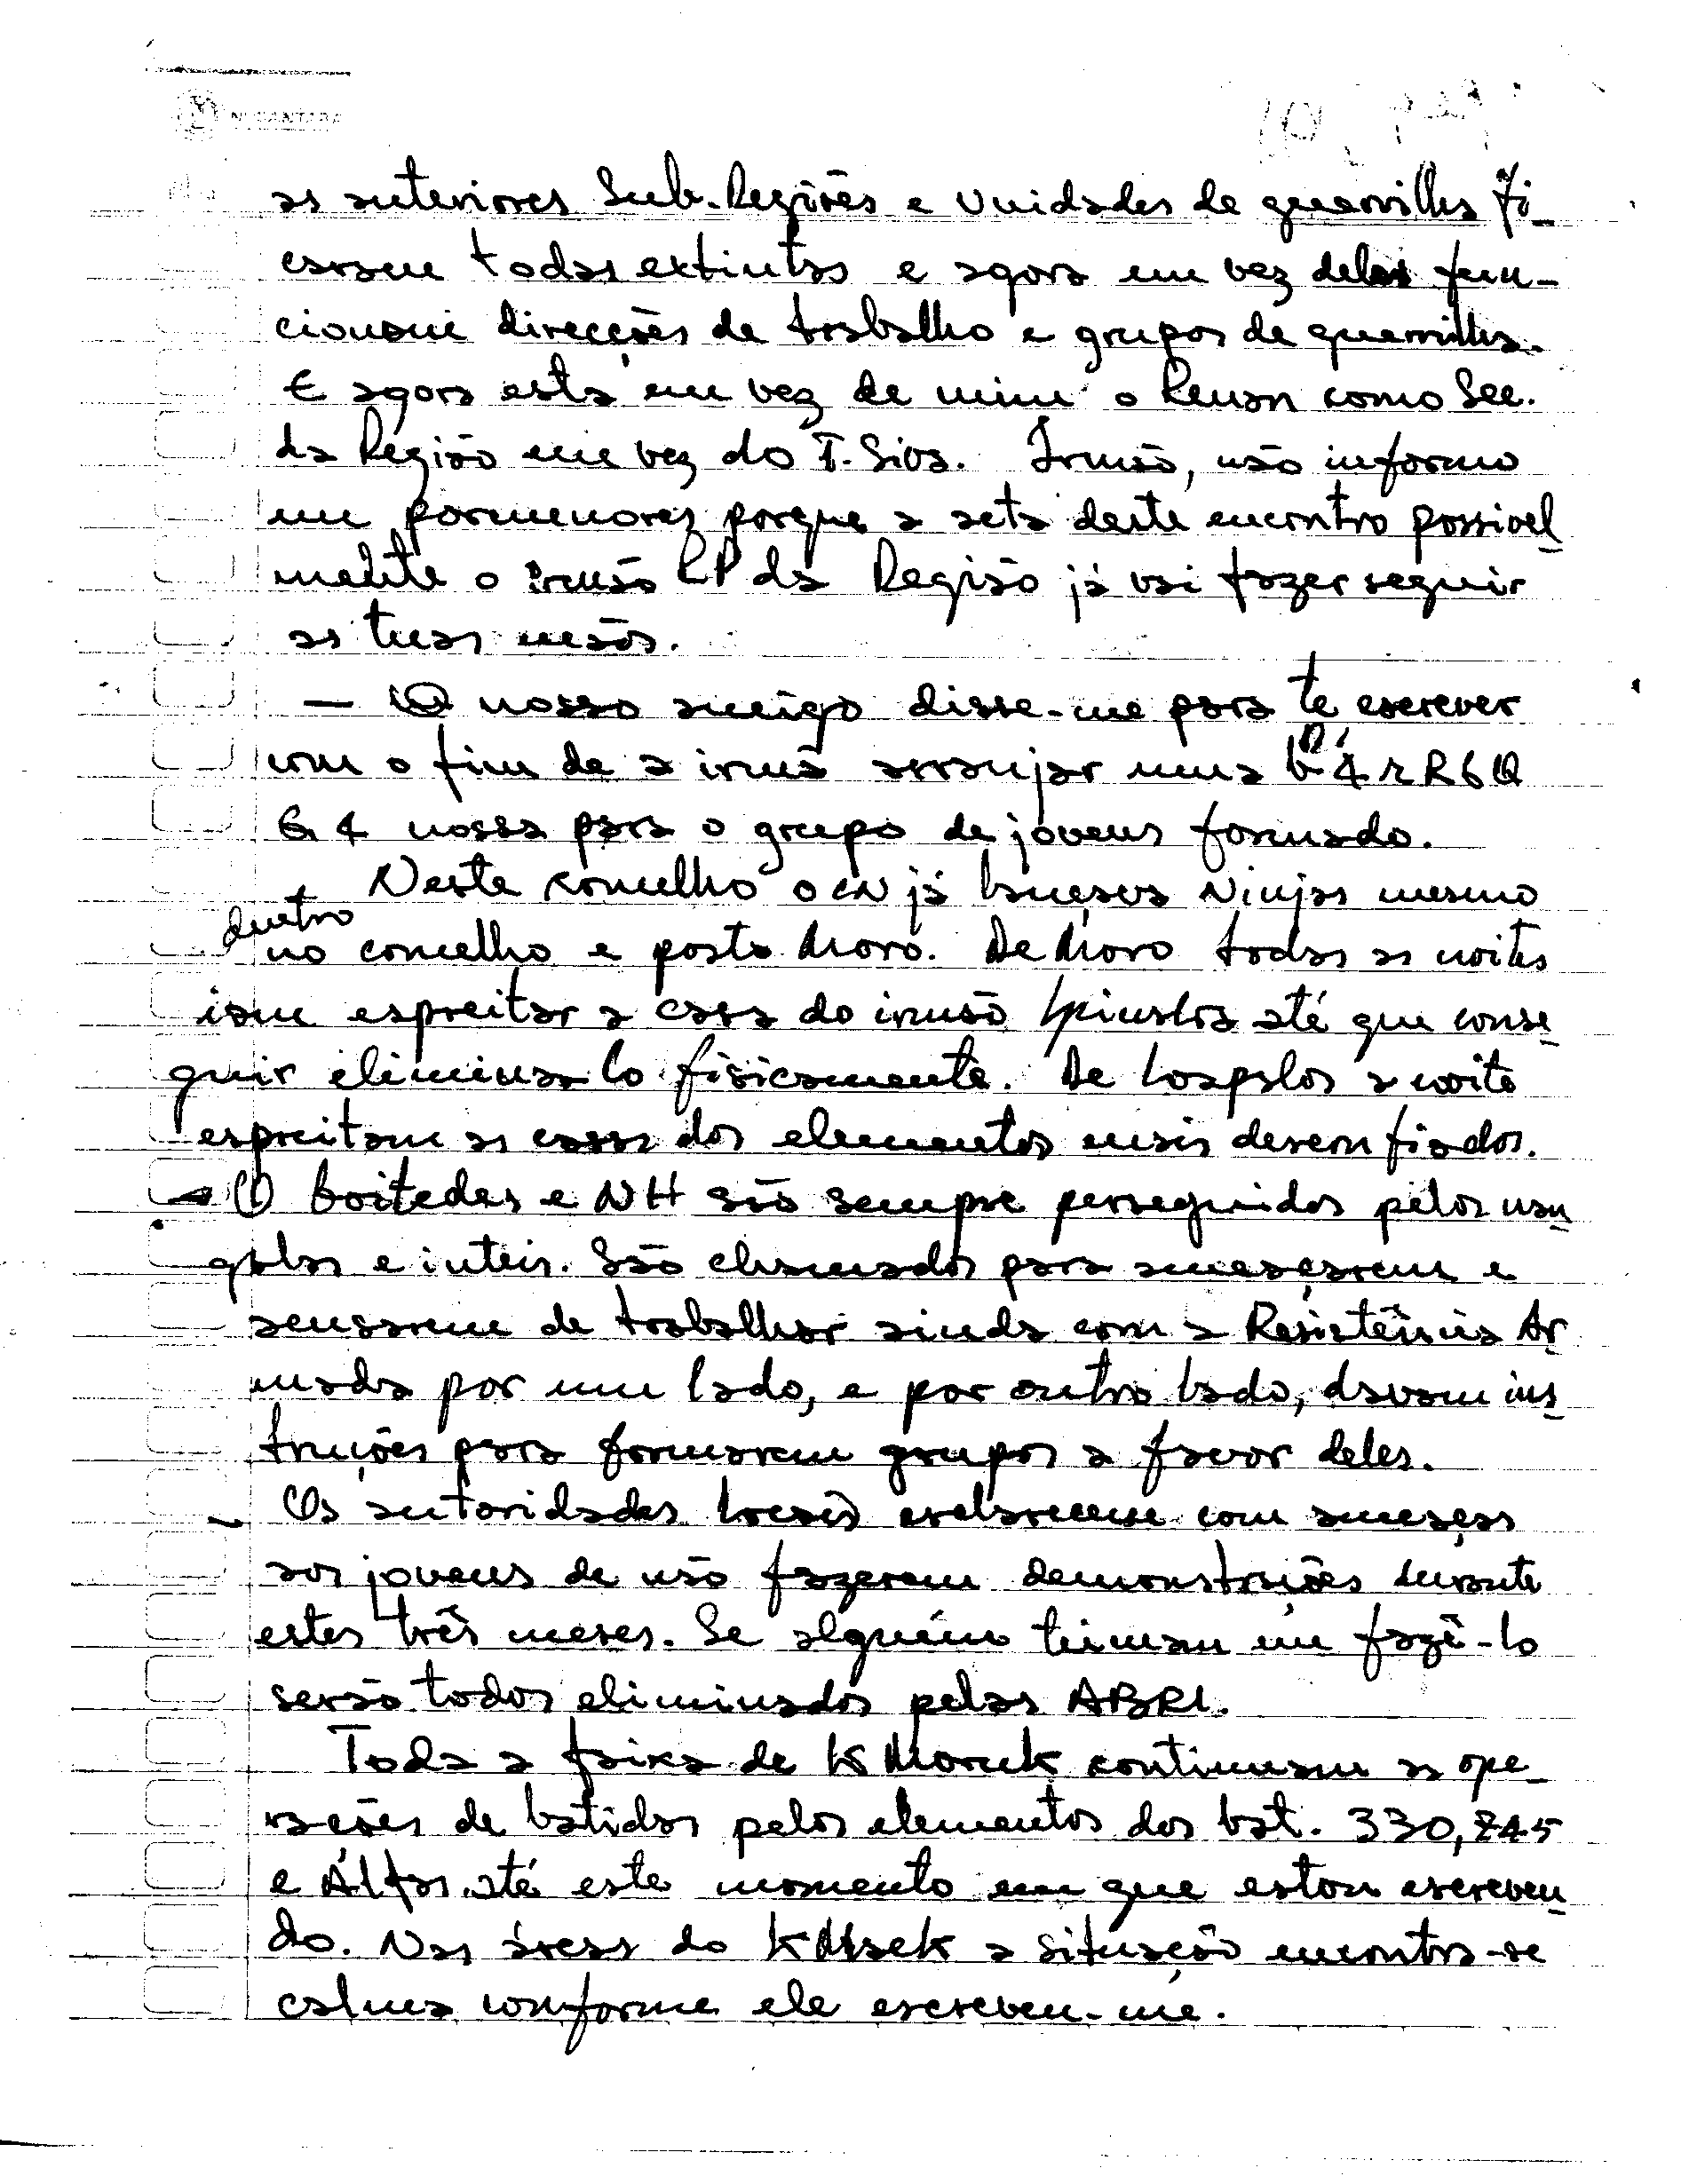 NUSANTARA
as anteriores Sub-Regiões e Unidades de guerrilha fi-
caram todas extintas e agora em vez delas fun-
cionam direcções de trabalho e grupos de guerrilha.
E agora está em vez de mim o Renan como Sec.
da Região em vez do T. Siva. Irmão, não informo
em pormenores porque a acta deste encontro possivel
mente o irmão RP da Região já vai fazer seguir
as tuas mãos.
— O nosso amigo disse-me para te escrever
com o fim de a irmã arranjar uma
G4 nossa para o grupo de jovens formado.
Neste concelho o já lançava Ninjas mesmo
dentro
no concelho e posto Moro. De Moro todas as noites
iam espreitar a casa do irmão até que conse
guir elimina-lo fisicamente. De Loapalos a noite
espreitam as casas dos elementos mais desconfiados.
O Boitedas e NH são sempre perseguidos pelos nan
galas e inteis. São chamados para ameaçarem e
acusarem de trabalhar ainda com a Resistência Ar
mada por um lado, e por outro lado, davam ins
truções para formarem grupos a favor deles.
- Os autoridades locais esclarecem com ameaças
aos jovens de não fazerem demonstrações durante
estes três meses. Se alguém teimam em fazê-lo
serão todos eliminados pelas ABRI.
Toda a faixa de K Moruk continuam as ope
rações de batidas pelos elementos dos bat. 330, 745
e Alfas até este momento em que estou escreven
do. Nas áreas do a situação encontra-se
calma conforme ele escreveu-me.